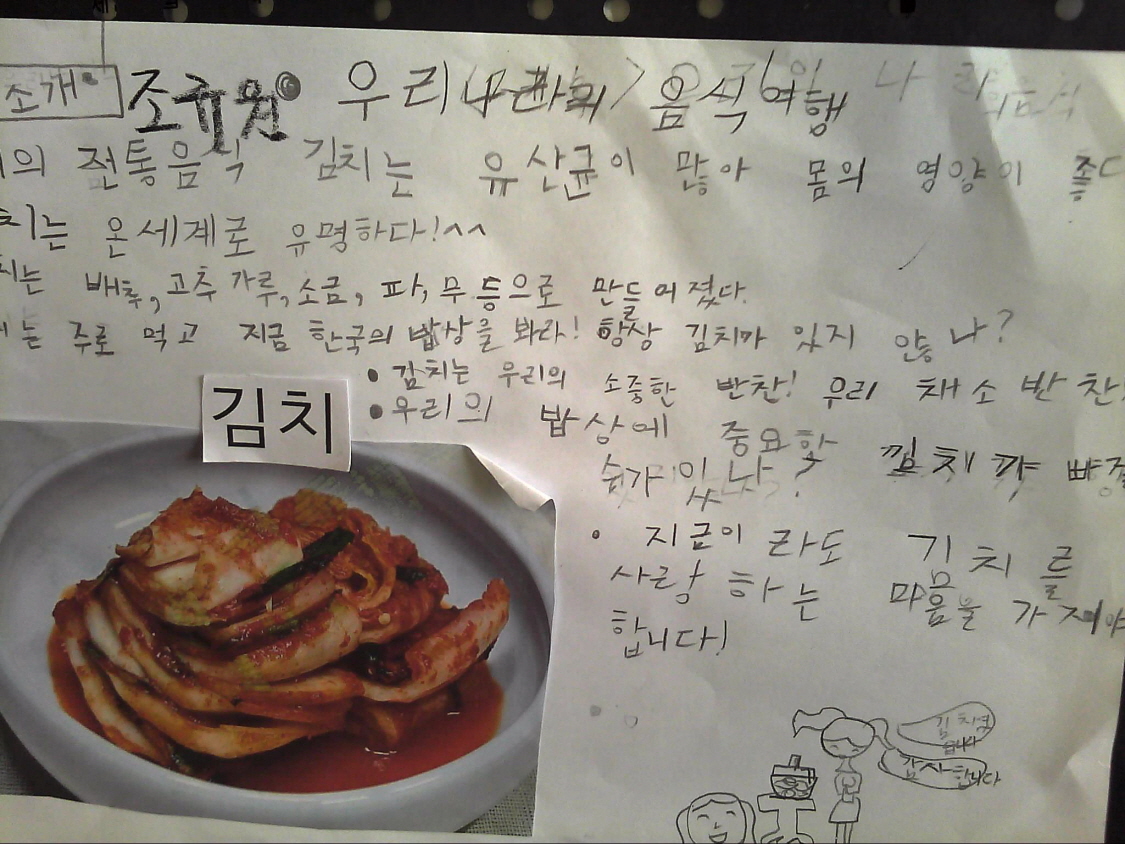 소개
조규원 우리나라의 음식여행
의 전통음식 김치는 유산균이 많아 몸의 영양이 좋다
치는 온세계로 유명하다!^^
치는 배추, 고추가루, 소금, 파, 무 등으로 만들어졌다.
는 주로 먹고 지금 한국의 밥상을 봐라! 항상 김치가 있지 않나?
• 김치는 우리의 소중한 반찬! 우리 채소 반찬!
• 우리의 밥상에 중요한 김치가 빠질
수가 있나?
• 지금이라도 김치를
사랑하는 마음을 가져야
합니다!
김치
김치였
습니다
감사합니다